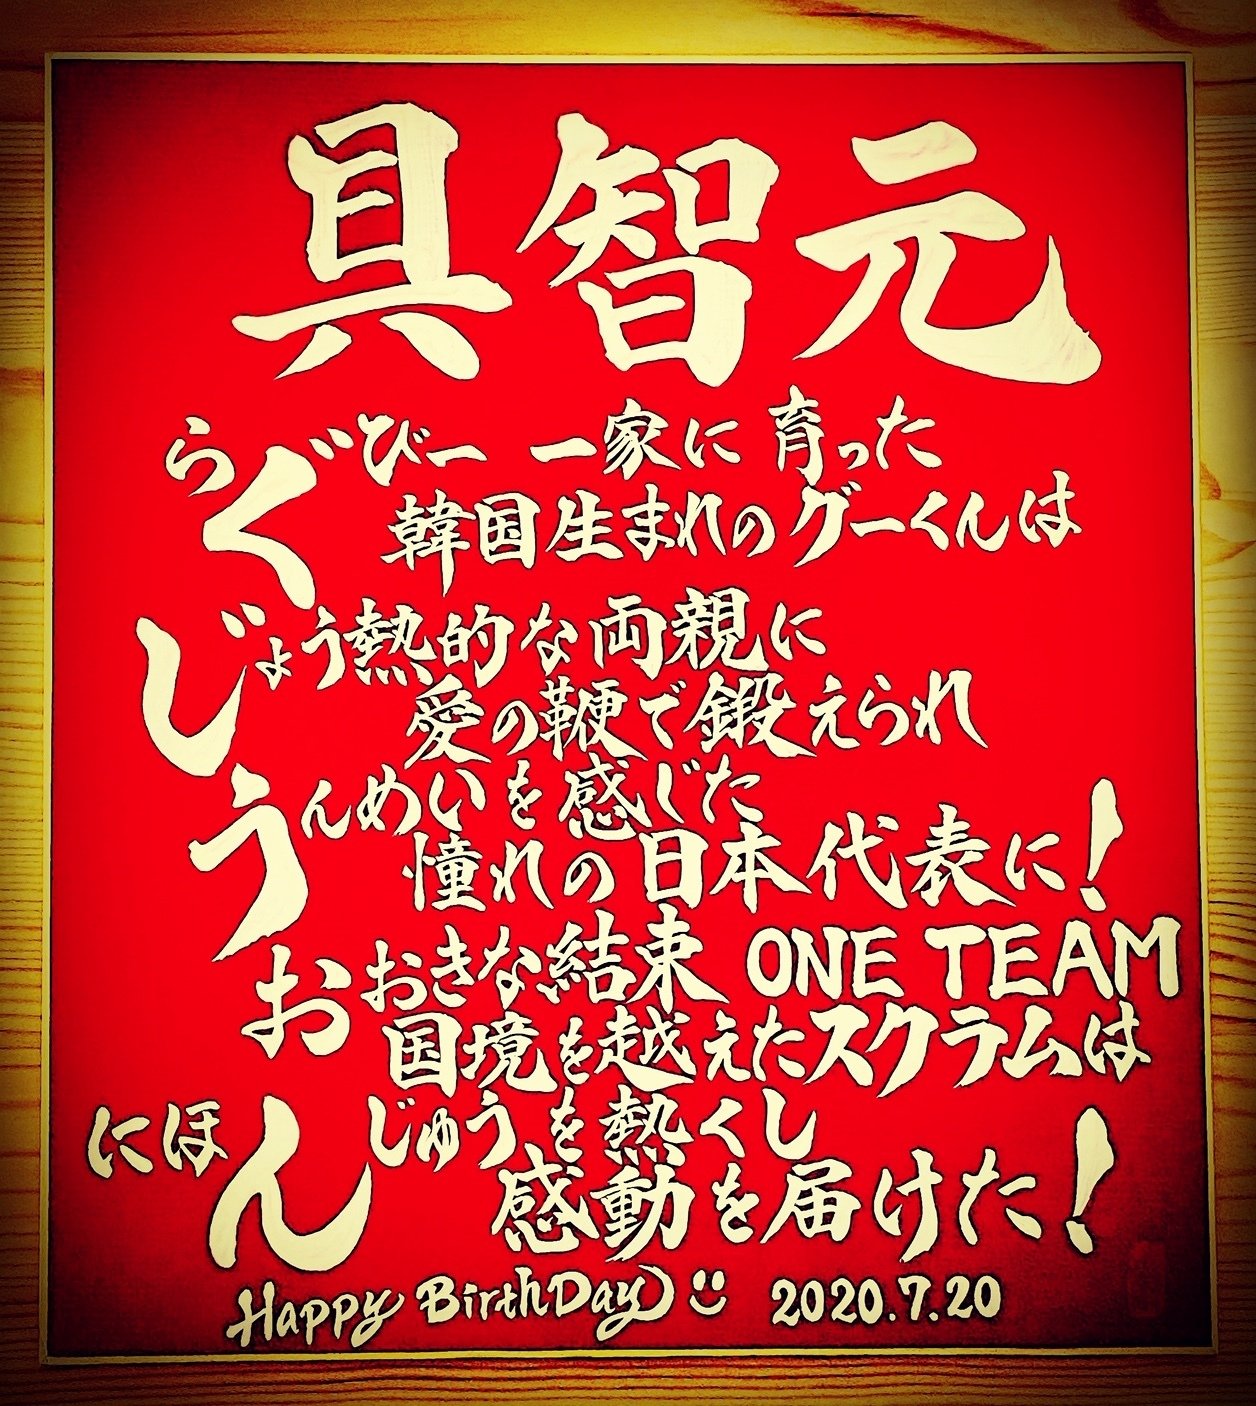 具智元
らぐびー 一家に育った
韓国生まれのグーくんは
じょう熱的な両親に
愛の鞭で鍛えられ
うんめいを感じた
憧れの日本代表に!
おおきな結束 ONE TEAM
国境を越えたスクラムは
にほんじゅうを熱くし
感動を届けた!
Happy BirthDay 2020.7.20